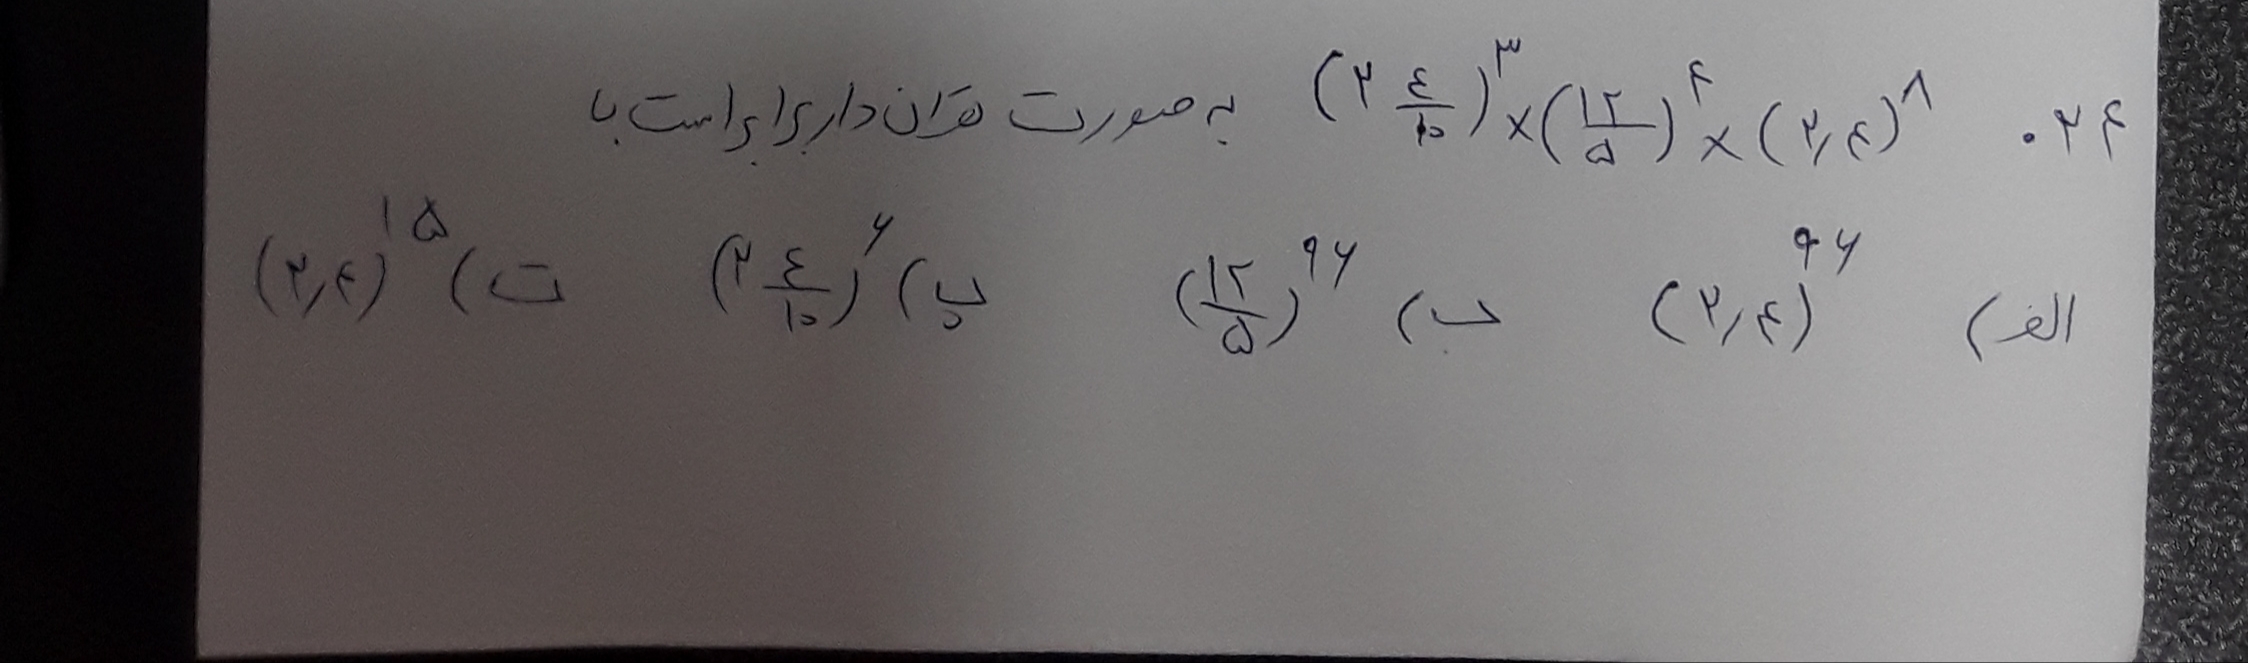 ۲۴. (۲ ۴/۱۰)^۳ × (۱۲/۵)^۴ × (۲٫۴)^۸ به صورت توان دار برابر است با
الف) (۲٫۴)^۹۶ ب) (۱۲/۵)^۹۶ پ) (۲ ۴/۱۰)^۶ ت) (۲٫۴)^۱۵